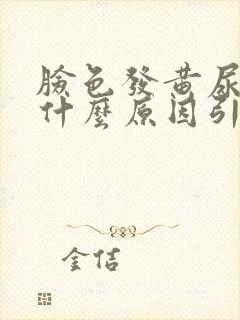 臉色發黃尿
什麼原因引
金佶